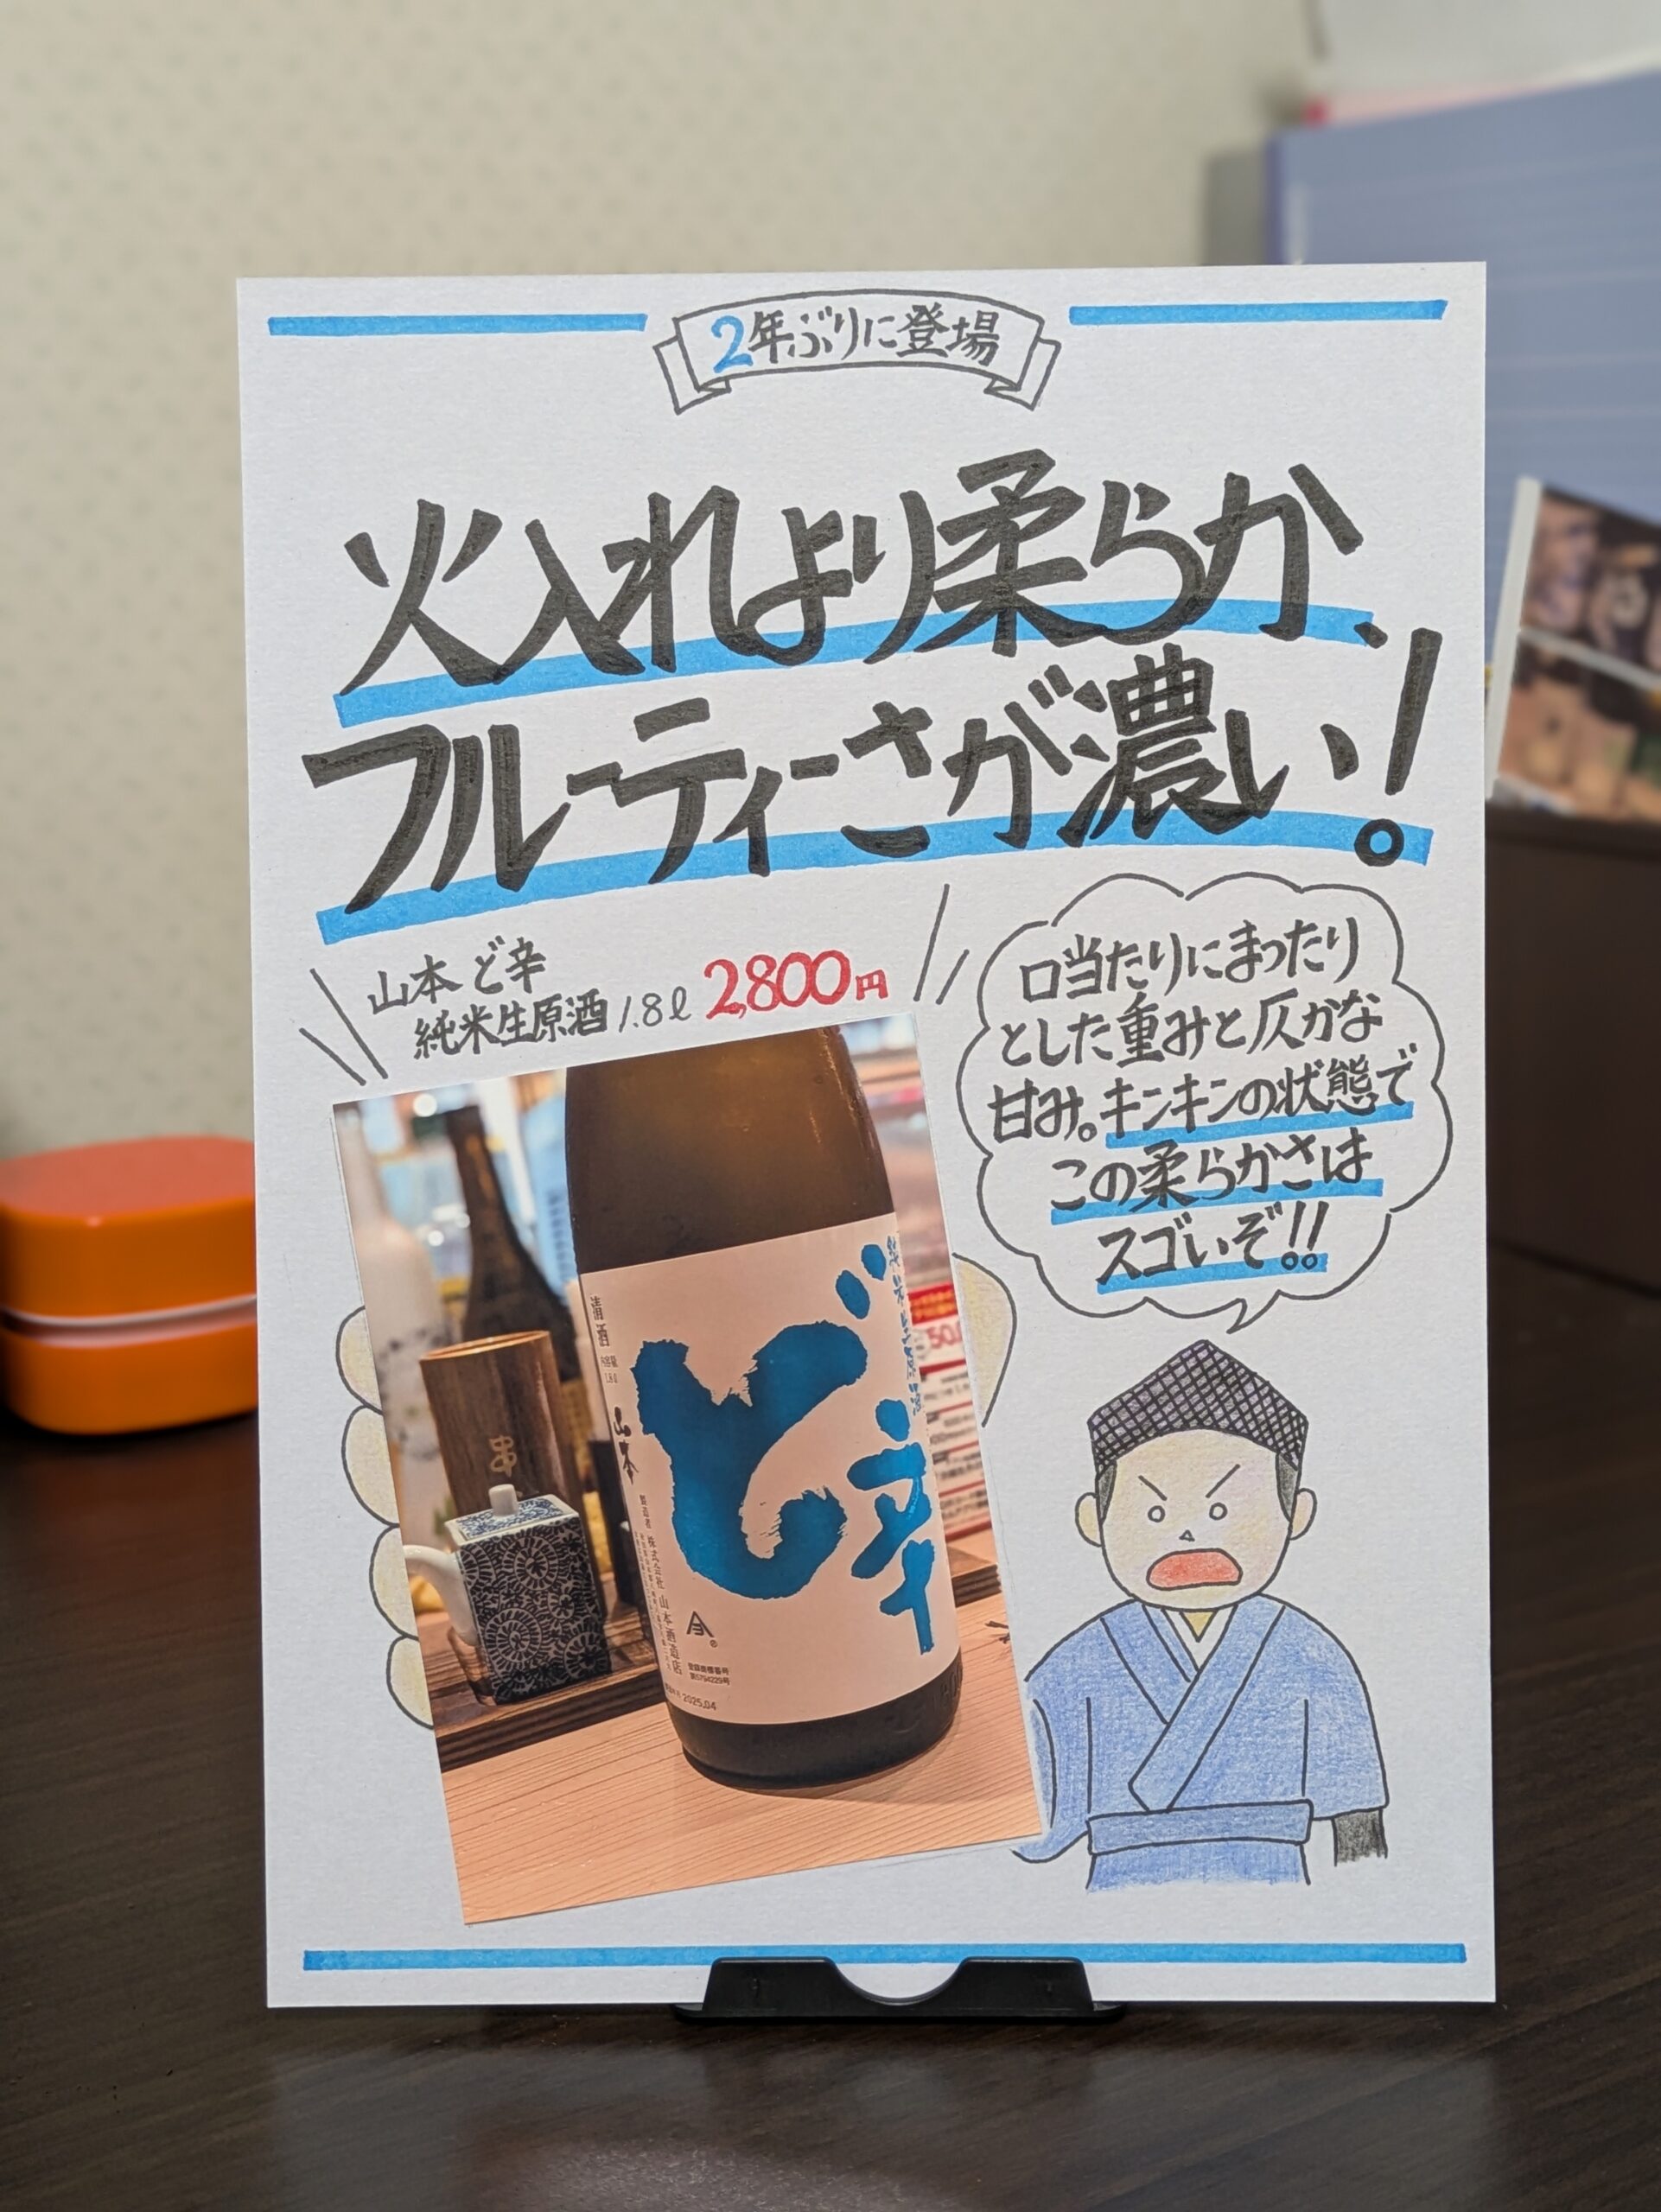 2年ぶりに登場
火入れより柔らか、
フルーティーさが濃い!
山本 ど辛
純米生原酒 1.8ℓ 2,800円
口当たりにまったり
とした重みと仄かな
甘み。キンキンの状態で
この柔らかさは
スゴいぞ!!
ど辛
清酒
山本
製造者 株式会社 山本酒造店
登録商標番号
第5794229号
2025.04
串